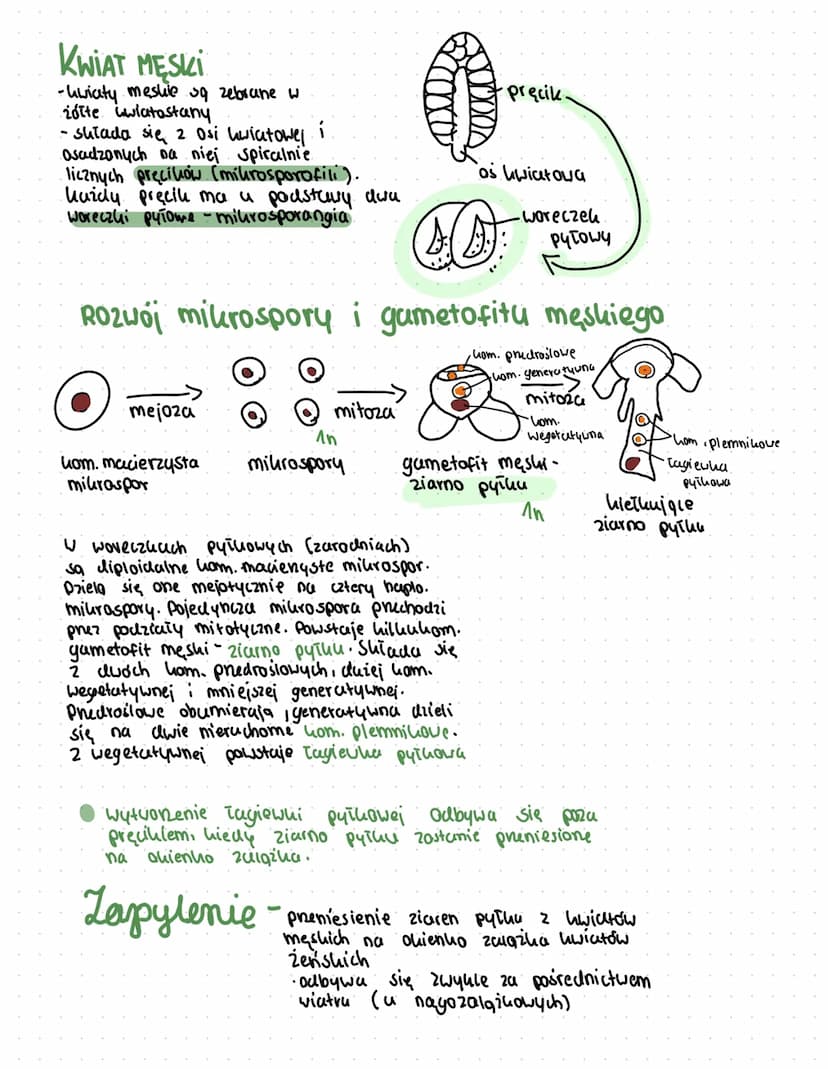 KWIAT MĘSKI
-kwiaty męskie są zebrane w
żółte kwiatostany
- składa się z osi kwiatowej i
osadzonych na niej spiralnie
licznych pręcików (mikrosporofili).
każdy pręcik ma u podstawy dwa
woreczki pyłowe - mikrosporangia
pręcik
oś kwiatowa
woreczek
pyłowy
Rozwój mikrospory i gametofitu męskiego
mejoza
mitoza
mitoza
kom. przedroślowe
kom. generatywna
kom.
wegetatywna
kom. plemnikowe
łagiewka
pyłkowa
1n
kom. macierzysta
mikrospor
mikrospory
gametofit męski -
ziarno pyłku
1n
kiełkujące
ziarno pyłku
W woreczkach pyłkowych (zarodniach)
są diploidalne kom. macierzyste mikrospor.
Dzielą się one mejotycznie na cztery haplo.
mikrospory. Pojedyncza mikrospora przechodzi
przez podziały mitotyczne. Powstaje kilkukom.
gametofit męski - ziarno pyłku. Składa się
z dwóch kom. przedroślowych, dużej kom.
wegetatywnej i mniejszej generatywnej.
Przedroślowe obumierają, generatywna dzieli
się na dwie nieruchome kom. plemnikowe.
Z wegetatywnej powstaje łagiewka pyłkowa
wytworzenie łagiewki pyłkowej odbywa się poza
pręcikiem, kiedy ziarno pyłku zostanie przeniesione
na okienko zalążka.
Zapylenie - przeniesienie ziaren pyłku z kwiatów
męskich na okienko zalążka kwiatów
żeńskich
·odbywa się zwykle za pośrednictwem
wiatru (u nagozalążkowych)